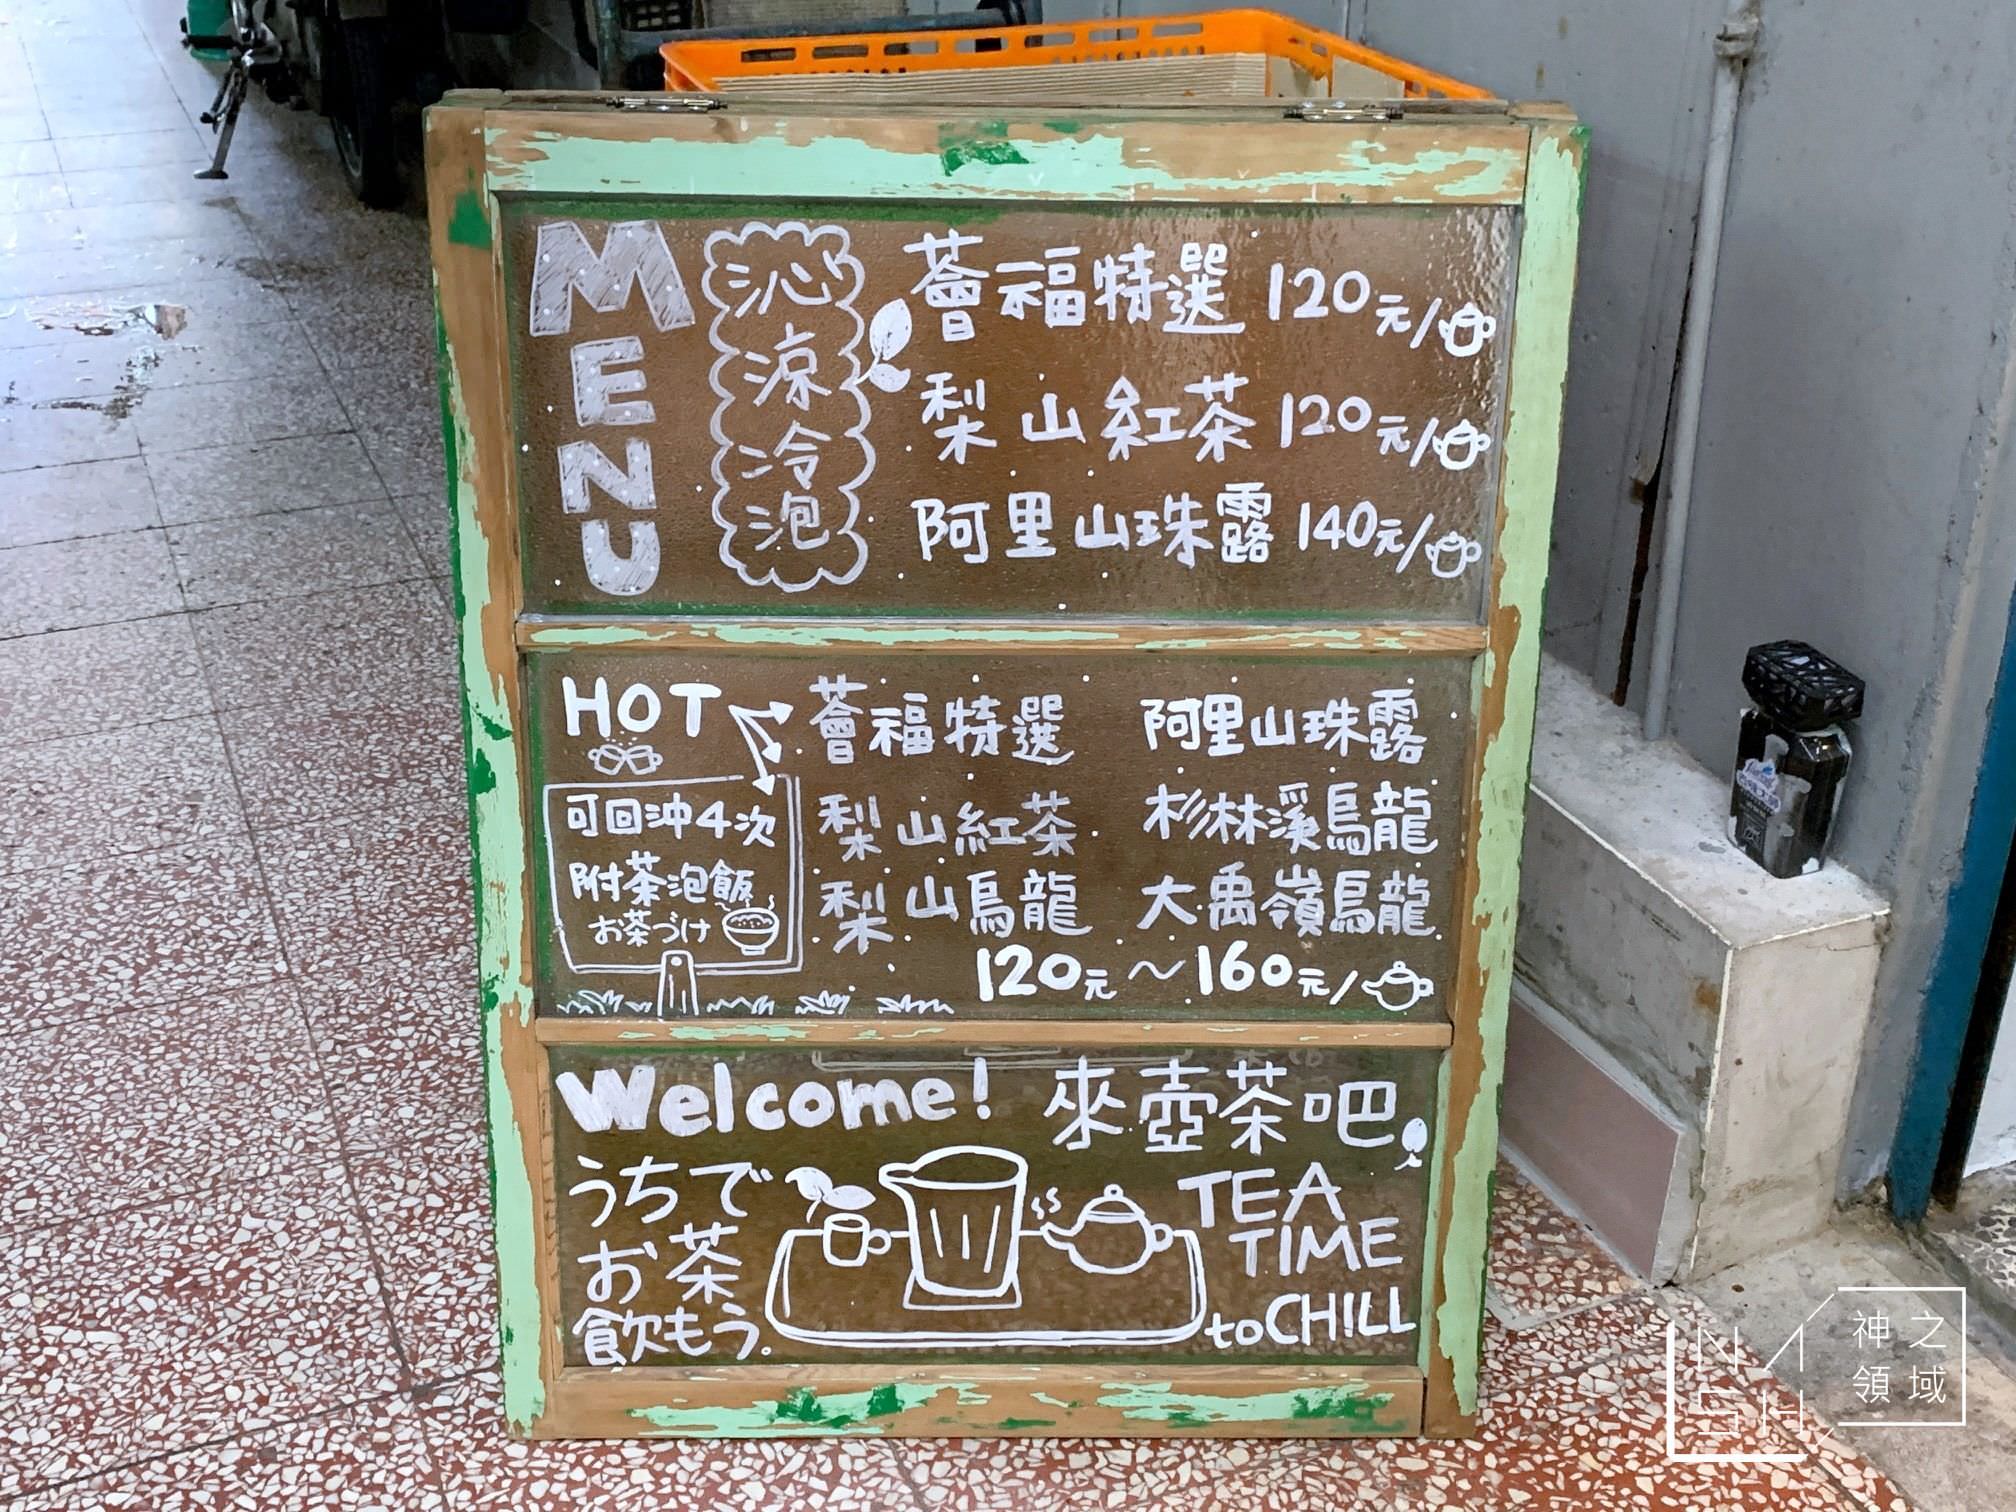 MENU
沁涼冷泡
薈福特選 120元/
梨山紅茶 120元/
阿里山珠露 140元/
HOT
可回沖4次
附茶泡飯
お茶づけ
薈福特選 阿里山珠露
梨山紅茶 杉林溪烏龍
梨山烏龍 大禹嶺烏龍
120元~160元/
Welcome! 來壺茶吧
うちで
お茶
飲もう。
TEA
TIME
to CHILL
NASH
神之
領域